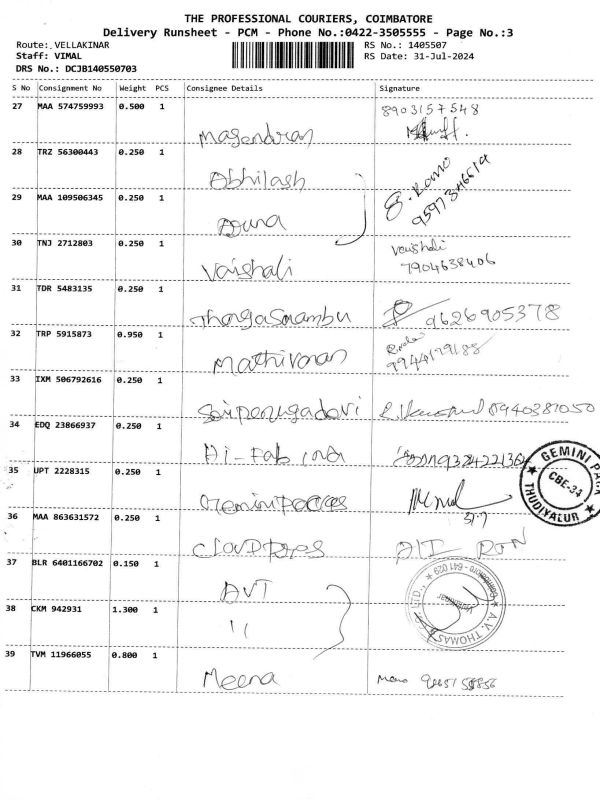 THE PROFESSIONAL COURIERS, COIMBATORE
Delivery Runsheet - PCM - Phone No.:0422-3505555 - Page No.:3
Route: VELLAKINAR RS No.: 1405507
Staff: VIMAL RS Date: 31-Jul-2024
DRS No.: DCJB140550703
S No Consignment No Weight PCS Consignee Details Signature
27 MAA 574759993 0.500 1 8903157548
Magendran
28 TRZ 56300443 0.250 1
Abhilash
29 MAA 109506345 0.250 1
30 TNJ 2712803 0.250 1 Vaishali
Vaishali 7904638406
31 TDR 5483135 0.250 1
9626905378
32 TRP 5915873 0.950 1
Mathivanan
33 IXM 506792616 0.250 1
8940387050
34 EDQ 23866937 0.250 1
Hi-Fab ind
35 UPT 2228315 0.250 1
GEMINI PACK
CBE-34
THUDIYALUR
36 MAA 863631572 0.250 1
37 BLR 6401166702 0.150 1
AVT
38 CKM 942931 1.300 1
"
A.V. THOMAS
Coimbatore - 641 029
39 TVM 11966055 0.800 1
Meena